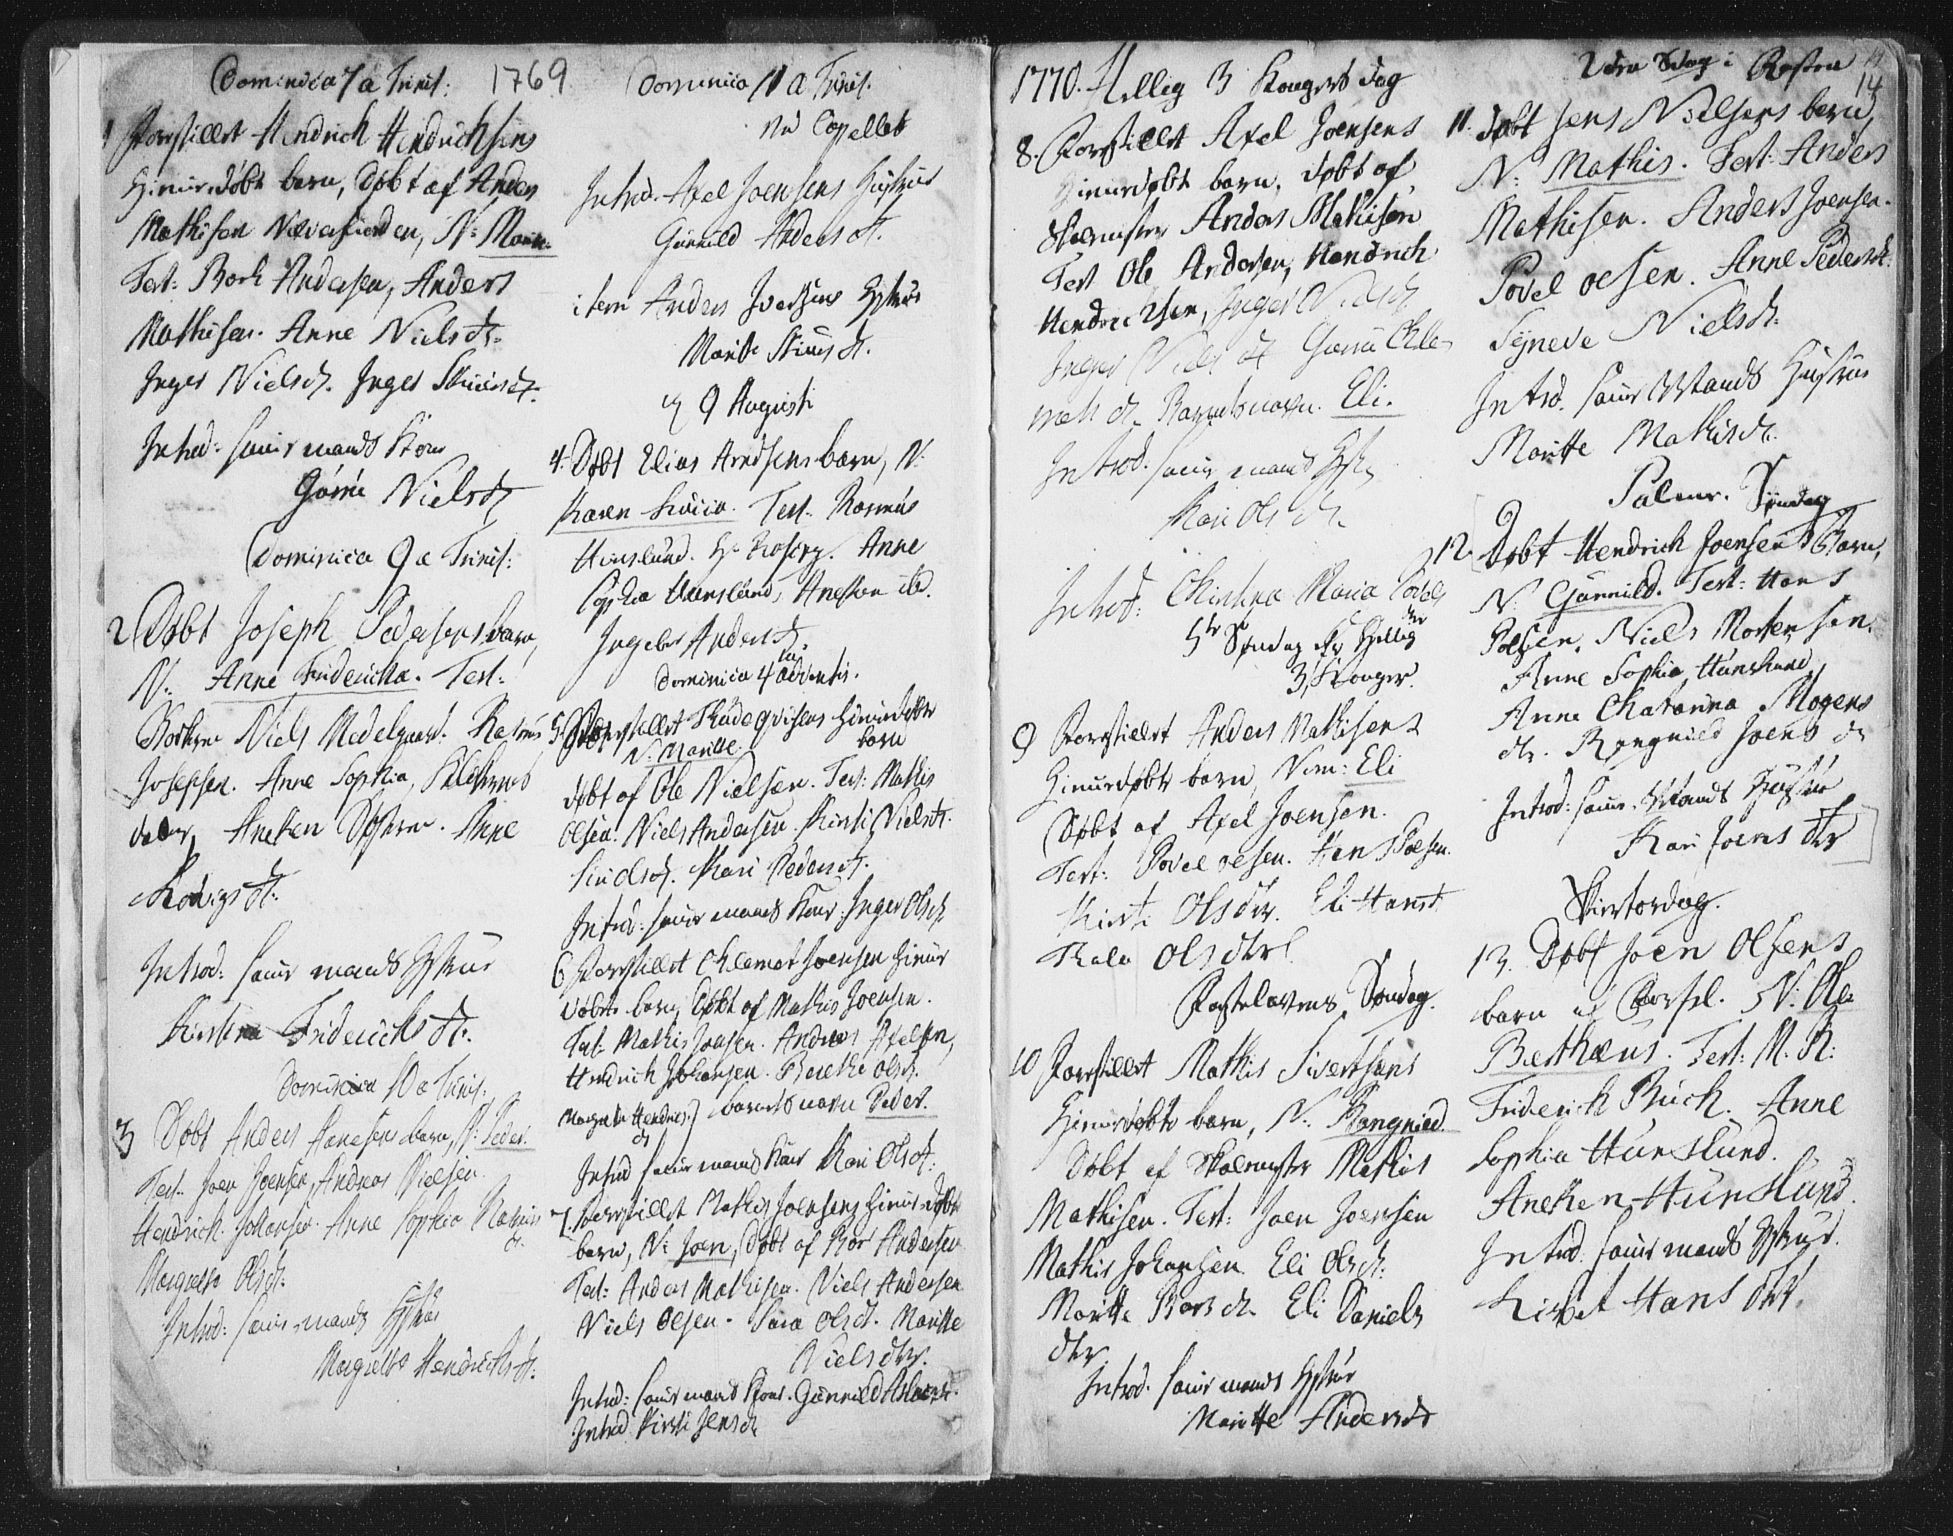 Dominica 7 a Trinit: 1769
1 Forestillet Hendrich Hendrichsens
Hiemedøbt barn, døbt af Anders
Mathisen Næversfiorden, N: Marit
Test: Borh Andersen, Anders
Mathisen. Anne Nielsdtr.
Inger Nielsd. Inger
Introd: samme mands Kone
Gørri Nielsdtr
Dominica 9 a Trinit:
2 Døbt Joseph Pedersens barn,
N: Anne Fridericka. Test:
Niels Medelgaard. Rasmus
Josephsen. Anne Sophia,
Aneken. Anne
Introd: samme mands Hustrue
Friderichs dtr.
Dominica 10 a Trinit:
3 Døbt Anders Hansens barn, N: Peder.
Test: Joen Joensen, Andreas Nielsen
Hendrich Johansen. Anne Sophia Rasmus
dr.
Margrethe Olsd.
Introd: samme mands Hustrue
Margrethe Hendrichs dtr.
Dominica 11 a Trinit.
ved Capellet
Introd. Axel Joensens Hustrue
Gunnild Anders dt.
item Anders Hustrue
Maritte
9 Augusti
4. Døbt Elias Arndsens barn, N:
Karen Lucia. Test. Rasmus
Hunslund. Anne
Sophia Hunslund, Aneken ibd.
Ingeber Anders dt.
Dominica 4 Adventus.
5 Forestillet Hiemedøbte
barn
N: Maritte.
døbt af Ole Nielsen. Test: Mathis
Olsen. Niels Andersen. Kirsti Nielsdt.
Kari Peders dt.
Introd: samme mands Kone: Inger Olsd.
6 Forestillet Clemet Joensens Hieme
døbte barn, døbt af Mathis Joensen.
Test: Mathis Joensen. Andreas Axelsen,
Hendrich Johansen. Berethe Olsd.
Margrethe Hendrics
dr
barnets navn Peder.
Introd samme mands Kone Kari Ols dt.
7. Forestillet Mathis Joensens Hiemedøbte
barn, N: Joen, døbt af Bor Andersen
Test: Anders Mathisen. Niels Andersen
Niels Olsen. Sara Olsdt. Maritte
Niels dtr.
Introd: samme mands Kone. Gunnild
Introd Kirsti Jensd.
1770. Hellig 3 Kongers dag
8. Forestillet Axel Joensens
Hiemedøbte barn, døbt af
Skolemester Anders Mathisen
Test Ole Andersen, Hendrich
Hendrichsen, Inger Nielsd.
Inger Niels dt Gørru Cle-
met dr. Barnets navn. Eli.
Introd. samme mands Hustr
Kari Ols dtr
Introd: Christina Maria
5te Søndag efter Hellig
3 Konger.
9 Forestillet Anders Mathisens
Hiemedøbte barn, Nom: Eli
Døbt af Axel Joensen.
Test: Povel Oelsen. Hans Poelsen.
Kirsti Olsdtr. Eli Hansdt
Olsdtr
Fastelavens Søndag.
10 Forestillet Mathis Sivertsens
Hiemedøbte barn, N: Rangnild
Døbt af Skolemester Mathis
Mathisen. Test: Joen Joensen
Mathis Johansen. Eli Olsd:
Maritte Borsdtr Eli Daniels
dtr
Introd. samme mands Hustrue
Maritte Andersdr
2den Sdag i Fasten 14
11. døbt Jens Nielsens barn,
N: Mathis. Test: Anders
Mathisen. Anders Joensen.
Povel Oelsen. Anne Pedersdt.
Synneve Nielsd.
Introd. samme Mands Hustrue
Maritte Mathisd.
Palme Søndag
12. Døbt Hendrich Joensens Barn,
N: Gunnild. Test: Hans
Poelsen. Niels Mortensen.
Anne Sophia Hunslund,
Anne Chatarina Mogens
dtr. Rangnild Joens dr
Introd: samme Mands Hustrue
Kari Joens dtr
Skiertorsdag.
13. Døbt Joen Olsens
barn N: Ole
Berthæus. Test: M. R:
Friderich Buch. Anne
Sophia Hunslund.
Aneken Hunslund.
Introd: samme mands Hustrue.
Lisbet Hans dtr.